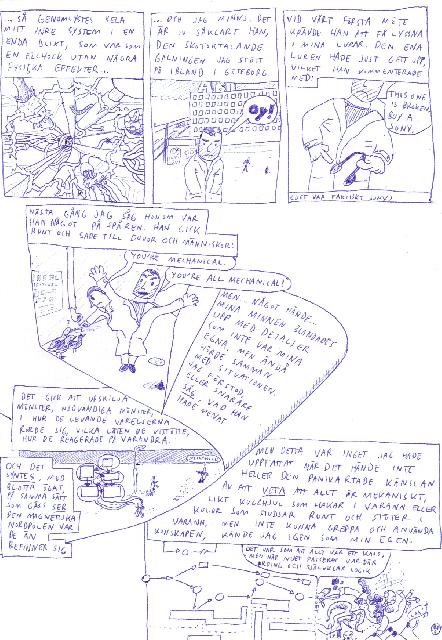 ...SÅ GENOMLYSTES HELA
MITT INRE SYSTEM I EN
ENDA BLIXT, SOM VAR SOM
EN ELCHOCK UTAN NÅGRA
FYSISKA EFFEKTER...
...OCH JAG MINNS. DET
ÄR JU SÅKLART HAN,
DEN SKOTSKTALANDE
GALNINGEN JAG STÖTT
PÅ IBLAND I GÖTEBORG
Oy!
VID VÅRT FÖRSTA MÖTE
KRÄVDE HAN ATT FÅ LYSSNA
I MINA LURAR. DEN ENA
LUREN HADE JUST GETT UPP,
VILKET HAN KOMMENTERADE
MED:
THIS ONE
IS BROKEN,
BUY A
SONY.
(DET VAR FAKTISKT SONY)
NÄSTA GÅNG JAG SÅG HONOM VAR
HAN NÅGOT PÅ SPÅREN. HAN GICK
RUNT OCH SADE TILL DUVOR OCH MÄNNISKOR:
YOU'RE MECHANICAL.
YOU'RE ALL MECHANICAL!
MEN... NÅGOT HÄNDE...
MINA MINNEN BLANDADES
UPP MED DETALJER
SOM INTE VAR MINA
EGNA, MEN ÄNDÅ
HÖRDE SAMMAN
MED SITUATIONEN.
JAG FÖRSTOD,
ELLER SNARARE
SÅG, VAD HAN
HADE VETAT.
DET GICK ATT URSKILJA
MÖNSTER, NÖDVÄNDIGA MÖNSTER,
I HUR DE LEVANDE VARELSERNA
RÖRDE SIG, VILKA LÄTEN DE YTTRADE,
HUR DE REAGERADE PÅ VARANDRA.
OCH DET
SYNTES, MED
BLOTTA ÖGAT,
PÅ SAMMA SÄTT
SOM GÅSS SER
DEN MAGNETISKA
NORDPOLEN VAR
DE ÄN
BEFINNER SIG
MEN DETTA VAR INGET JAG HADE
UPPFATTAT NÄR DET HÄNDE. INTE
HELLER DEN PANIKARTADE KÄNSLAN
AV ATT VETA ATT ALLT ÄR MEKANISKT,
LIKT KUGGHJUL SOM HAKAR I VARANN ELLER
KULOR SOM STUDSAR RUNT OCH STÖTER I
VARANN, MEN INTE KUNNA GREPPA OCH ANVÄNDA
KUNSKAPEN, KÄNDE JAG IGEN SOM MIN EGEN.
DET VAR SOM ATT ALLT VAR ETT KAOS,
MEN NÄR NUET PASSERAT VAR DÄR
ORDNING OCH SJÄLVKLAR LOGIK